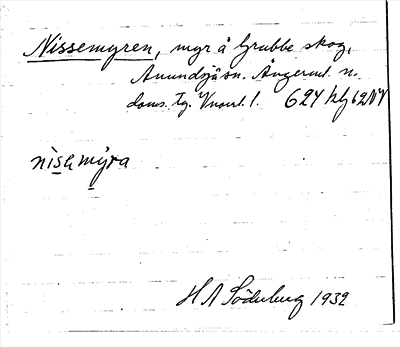 Nissemyren, myr å Grubbe skog,
Anundsjö sn. Ångerml. n.
doms. tg. Vnorrl. l. 624 klj 62NY
nisemyra
H A Söderberg 1932